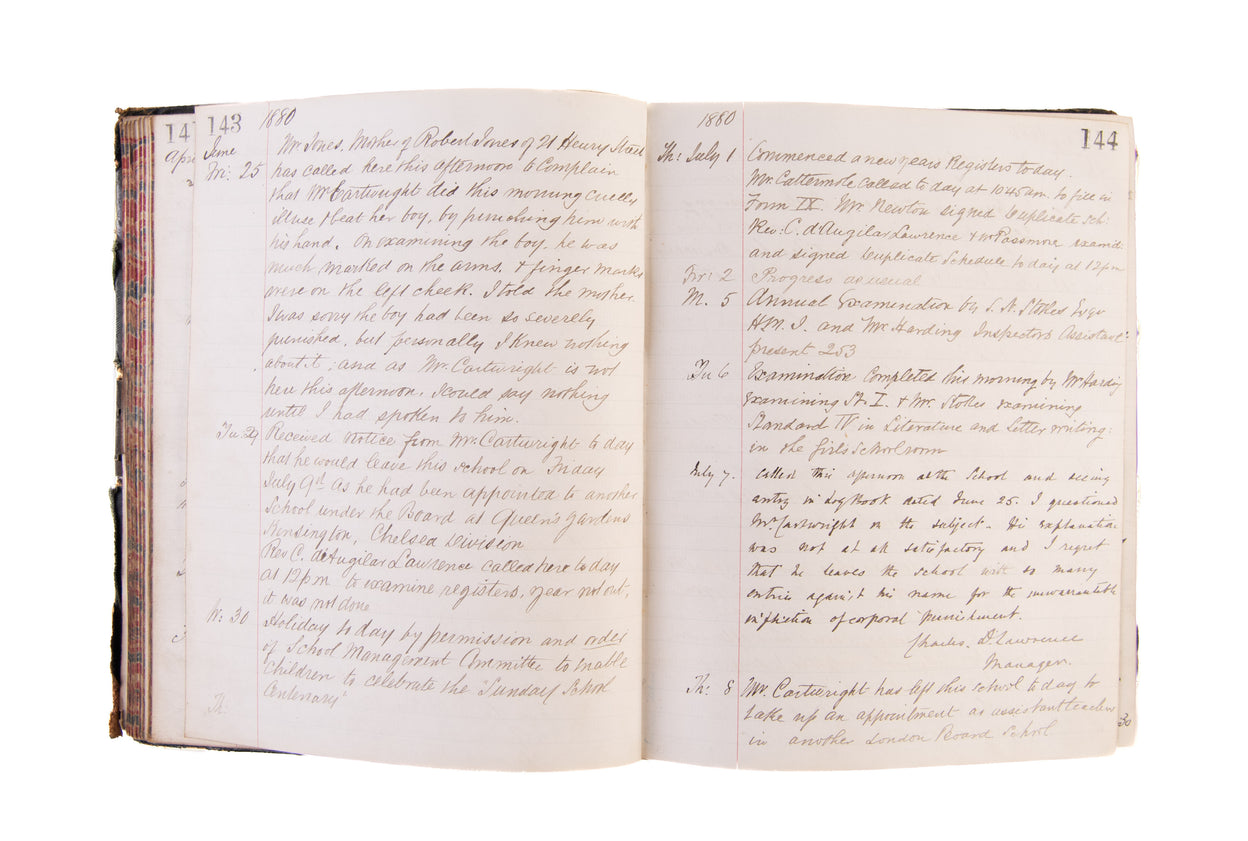 141
143
1880
April
June
Mrs Jones, Mother of Robert Jones of 21 Henry Street
Fri: 25 has called here this afternoon to Complain
that Mr Cartwright did this morning cruelly
illuse & beat her boy, by punching him with
his hand. On examining the boy, he was
much marked on the arms, & finger marks
were on the left cheek. I told the mother
I was sorry the boy had been so severely
punished, but personally I knew nothing
about it; and as Mr. Cartwright is not
here this afternoon, I could say nothing
until I had spoken to him.
Tu. 29 Received Notice from Mr. Cartwright to day
that he would leave this school on Friday
July 9th as he had been appointed to another
School under the Board at Queen's Gardens
Kensington, Chelsea Division
Rev C. deAugilar Lawrence called here to day
at 12 pm to examine registers, year not out,
it was not done
W: 30 Holiday to day by permission and order
of School Management Committee to enable
Children to celebrate the "Sunday School
Centenary"
Th:
1880
144
Th: July 1 Commenced a new years Registers to day.
Mr. Cattermole called to day at 10 45 am. to fill in
Form IX. Mr. Newton signed Duplicate Sch:
Rev: C. d'Augilar Lawrence & Mr Passmore examd:
and signed Duplicate Schedule to day at 12 pm
Fri: 2 Progress as usual
M. 5 Annual Examination by S. N. Stokes Esqr
H. M. I. and Mr Harding Inspectors Assistant
present 253
Tu 6 Examination Completed this morning by Mr Harding
examining St. I. & Mr. Stokes examining
Standard IV in Literature and Letter writing:
in the girls Schoolroom
July 7. Called this afternoon at the School and seeing
entry in Log Book dated June 25. I questioned
Mr. Cartwright on the subject. His explanation
was not at all satisfactory and I regret
that he leaves the school with so many
entries against his name for the unwarrantable
infliction of corporal punishment.
Charles. D. Lawrence
Manager.
Th: 8 Mr. Cartwright has left this school to day to
take up an appointment as assistant teacher
in another London Board School
30